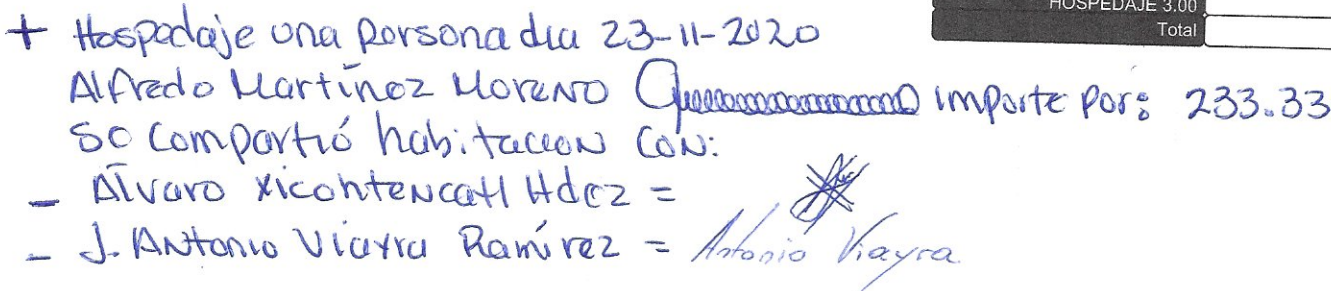 HOSPEDAJE 3.00
Total
+ Hospedaje una persona dia 23-11-2020
Alfredo Martínez Moreno importe por: 233.33
Se compartió habitacion con:
- Alvaro Xicohtencatl Hdez =
- J. Antonio Viayra Ramírez = Antonio Viayra